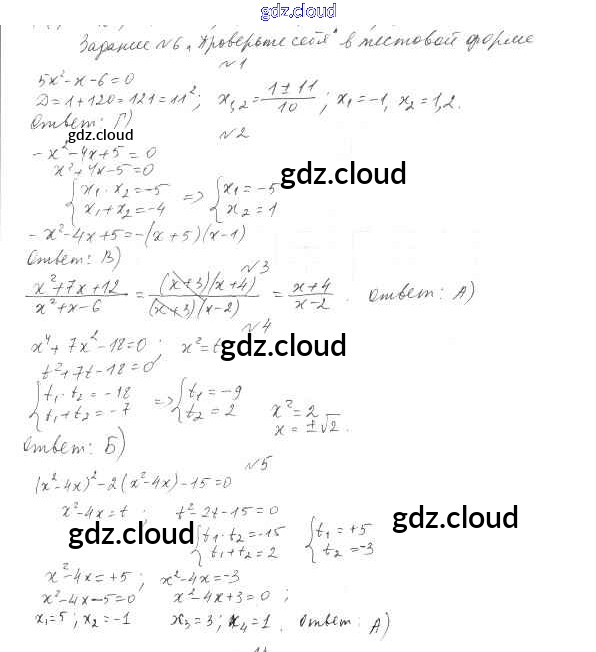 gdz.cloud
Задание №6 „Проверьте себя" в тестовой форме
№1
5x²-x-6=0
D=1+120=121=11²; x₁,₂=(1±11)/10; x₁=-1, x₂=1,2.
Ответ: Г)
gdz.cloud
№2
-x²-4x+5=0
x²+4x-5=0
{x₁·x₂=-5 => {x₁=-5
{x₁+x₂=-4 {x₂=1
gdz.cloud
-x²-4x+5=-(x+5)(x-1)
Ответ: В)
№3
(x²+7x+12)/(x²+x-6)=((x+3)(x+4))/((x+3)(x-2))=(x+4)/(x-2). Ответ: А)
№4
x⁴+7x²-18=0; x²=t
gdz.cloud
t²+7t-18=0
{t₁·t₂=-18 => {t₁=-9
{t₁+t₂=-7 {t₂=2
x²=2
x=±√2.
Ответ: Б)
№5
(x²-4x)²-2(x²-4x)-15=0
x²-4x=t; t²-2t-15=0
gdz.cloud
{t₁·t₂=-15 {t₁=+5
{t₁+t₂=2 {t₂=-3
gdz.cloud
x²-4x=+5; x²-4x=-3
x²-4x-5=0 x²-4x+3=0;
x₁=5; x₂=-1 x₃=3; x₄=1. Ответ: А)